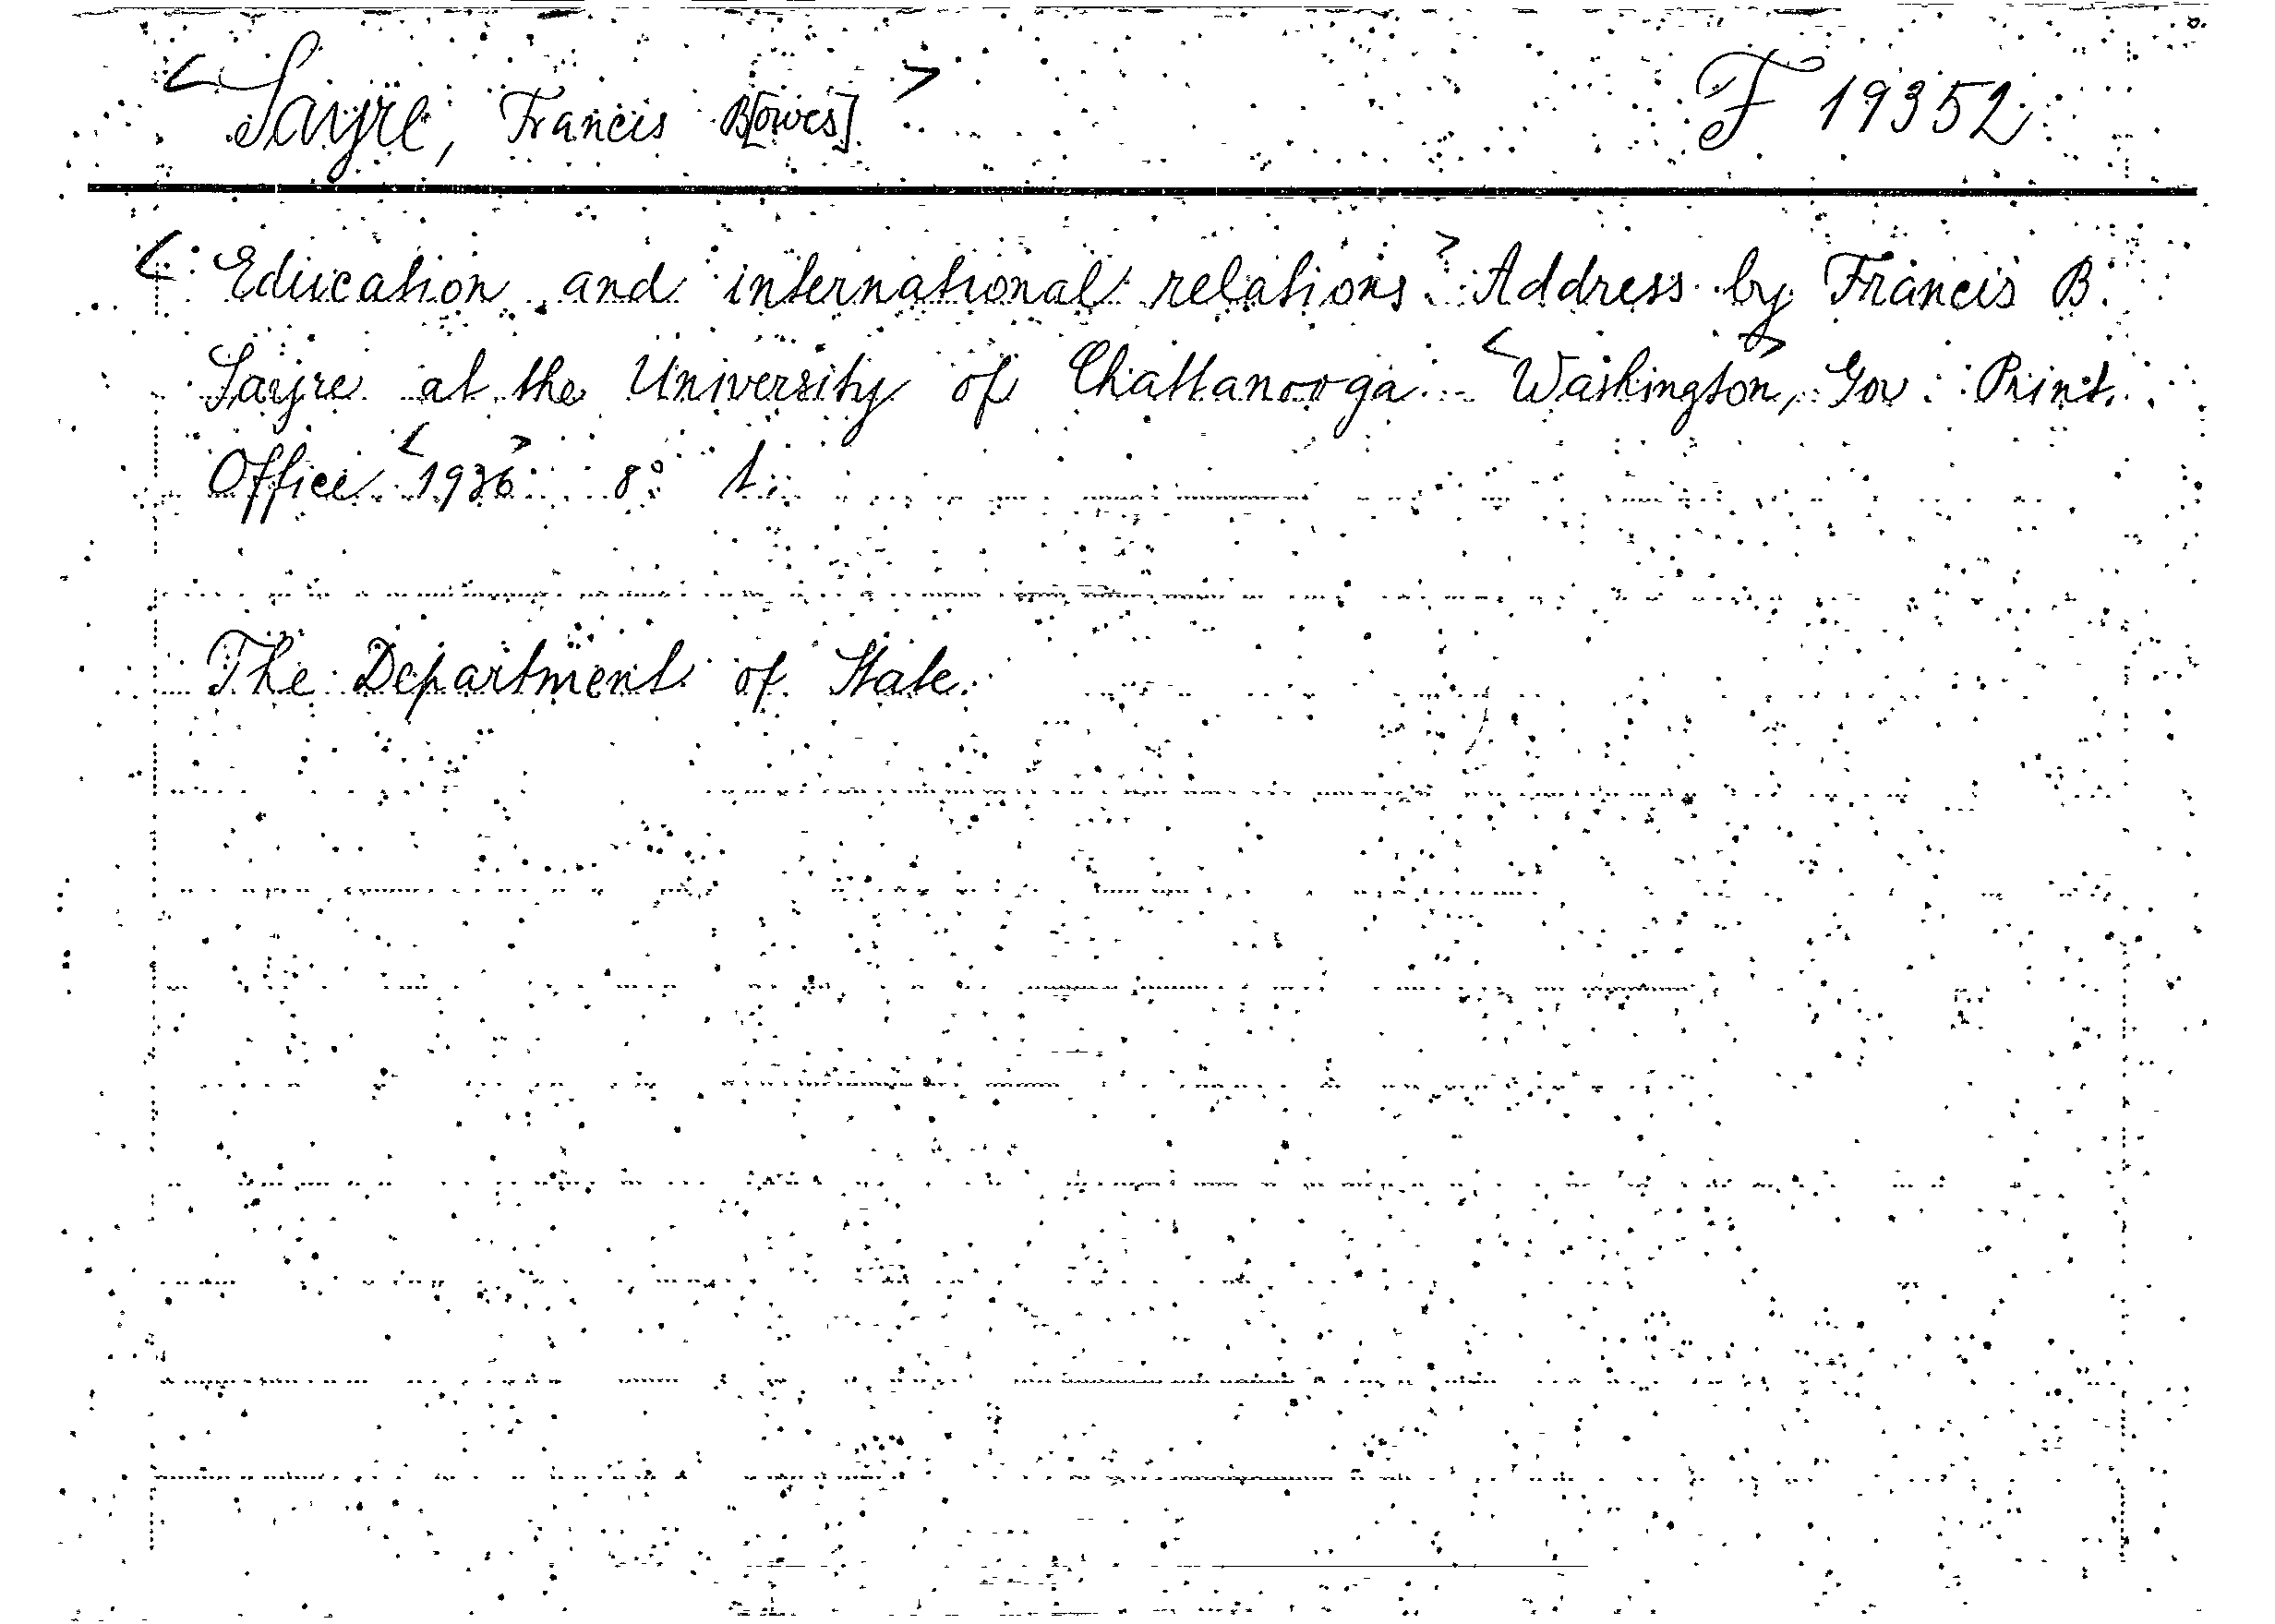 < Sayre, Francis B[owes] > F 19352
< Education and international relations. > Address by Francis B.
Sayre at the University of Chattanooga. < Washington, > Gov. Print.
Office < 1936 > 8° 1.
The Department of State.